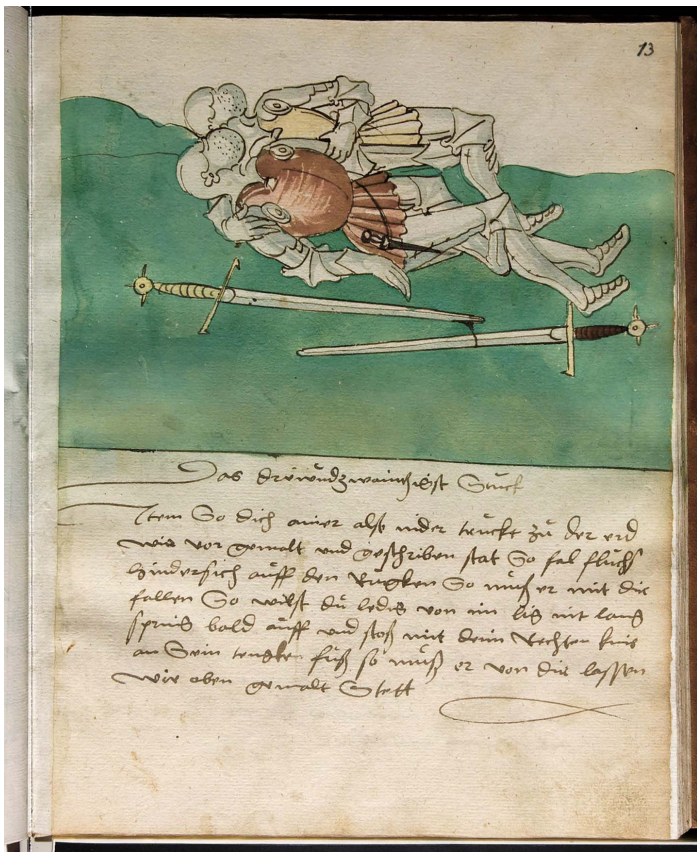 13
Das drüwundzwaintzigist Stuck
Item So dich ainer also nider truckt zu der erd
wie vor gemalt und geschriben stat So fal fluchs
hindersich auff den Rugken So muß er mit dir
fallen So wilst du ledig von im lig nit lang
spring bald auff und stoß mit deim Rechten knie
an Sein lengken fuß so muß er von dir lassen
wie oben gemalt Stett